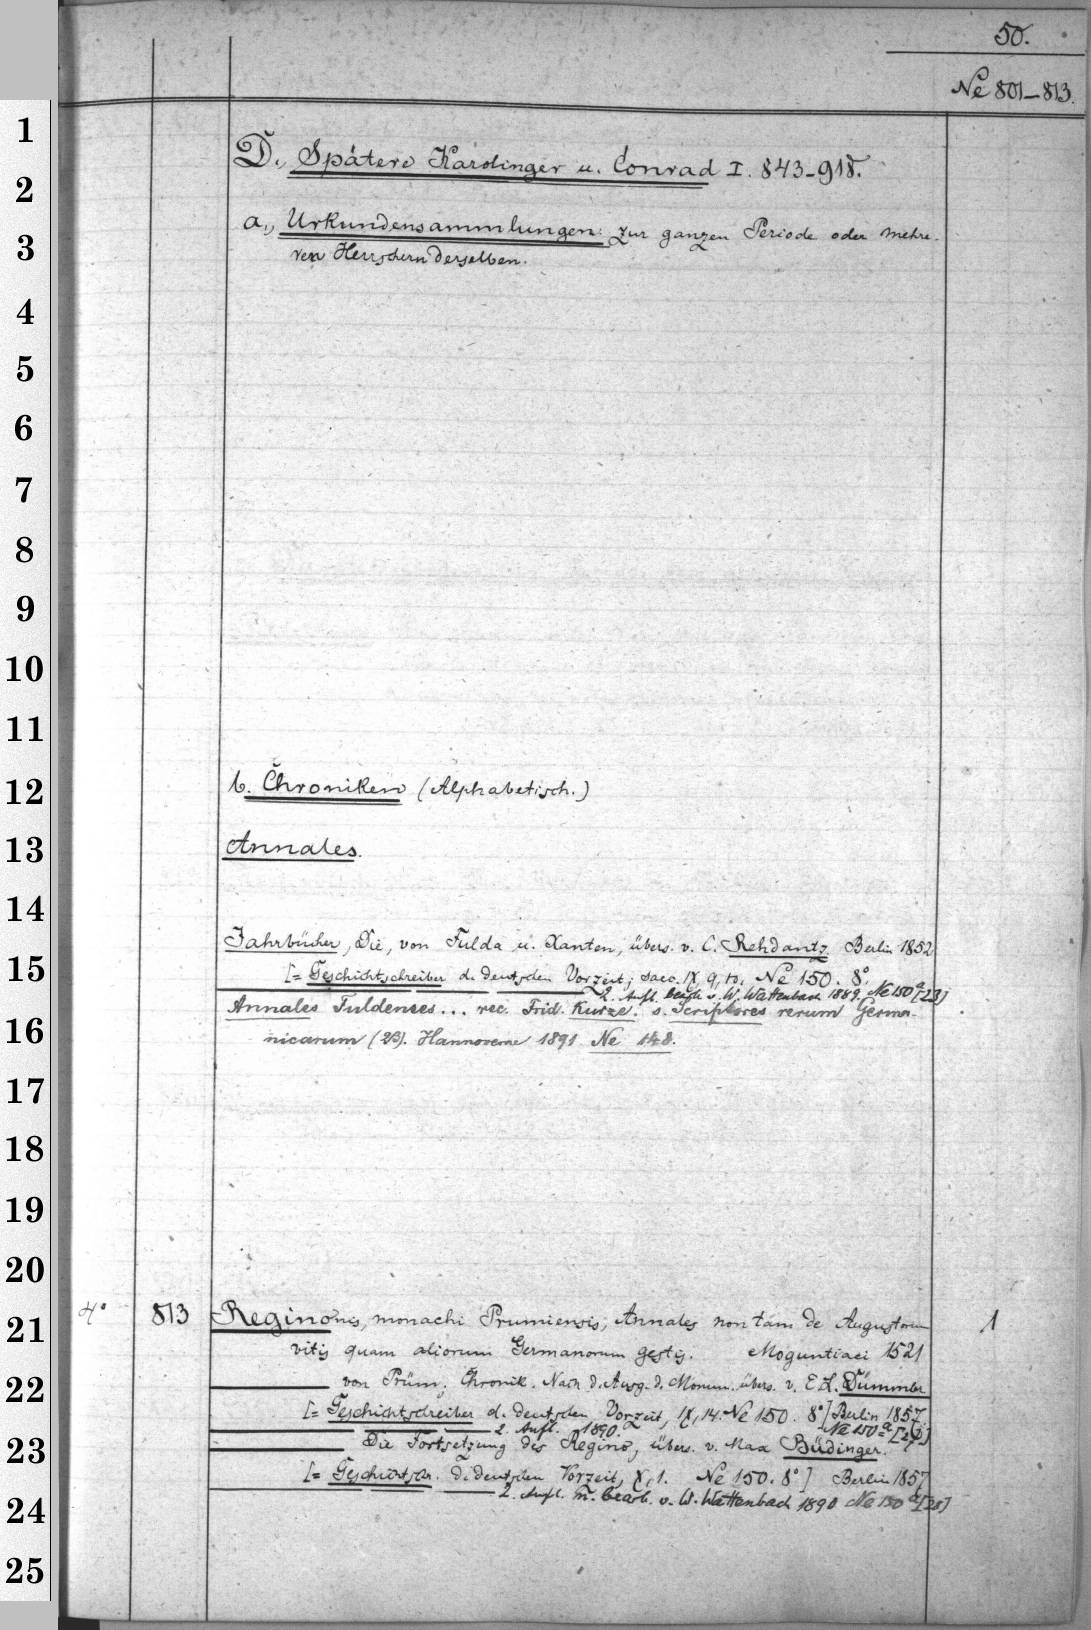 50.
Ne 801-813.
D., Spätere Karolinger u. Conrad I. 843-918.
a., Urkundensammlungen: zur ganzen Periode oder mehre-
ren Herrschern derselben.
b. Chroniken (Alphabetisch.)
Annales.
Jahrbücher, Die, von Fulda u. Xanten, übers. v. C. Rehdantz. Berlin 1852
[= Geschichtschreiber d. deutschen Vorzeit, saec. IX, 9, 10. Ne 150. 8°.
2. Aufl. bearb. v. W. Wattenbach 1889. Ne 150a [23]
Annales Fuldenses... rec. Frid. Kurze. s. Scriptores rerum Germa-
nicarum (23). Hannoverae 1891 Ne 148.
4° 813 Reginonis, monachi Prumiensis, Annales non tam de Augustorum 1
vitis quam aliorum Germanorum gestis. Moguntiaci 1521
von Prüm, Chronik. Nach d. Ausg. d. Monum. übers. v. E. L. Dümmler
[= Geschichtschreiber d. deutschen Vorzeit, IX, 14. Ne 150. 8°] Berlin 1857
2. Aufl. 1890. Ne 150a [27]
Die Fortsetzung des Regino, übers. v. Max Büdinger.
[= Geschichtschr. d. deutschen Vorzeit, X, 1. Ne 150. 8°] Berlin 1857
2. Aufl. n. bearb. v. W. Wattenbach 1890 Ne 150a [28]
1
2
3
4
5
6
7
8
9
10
11
12
13
14
15
16
17
18
19
20
21
22
23
24
25